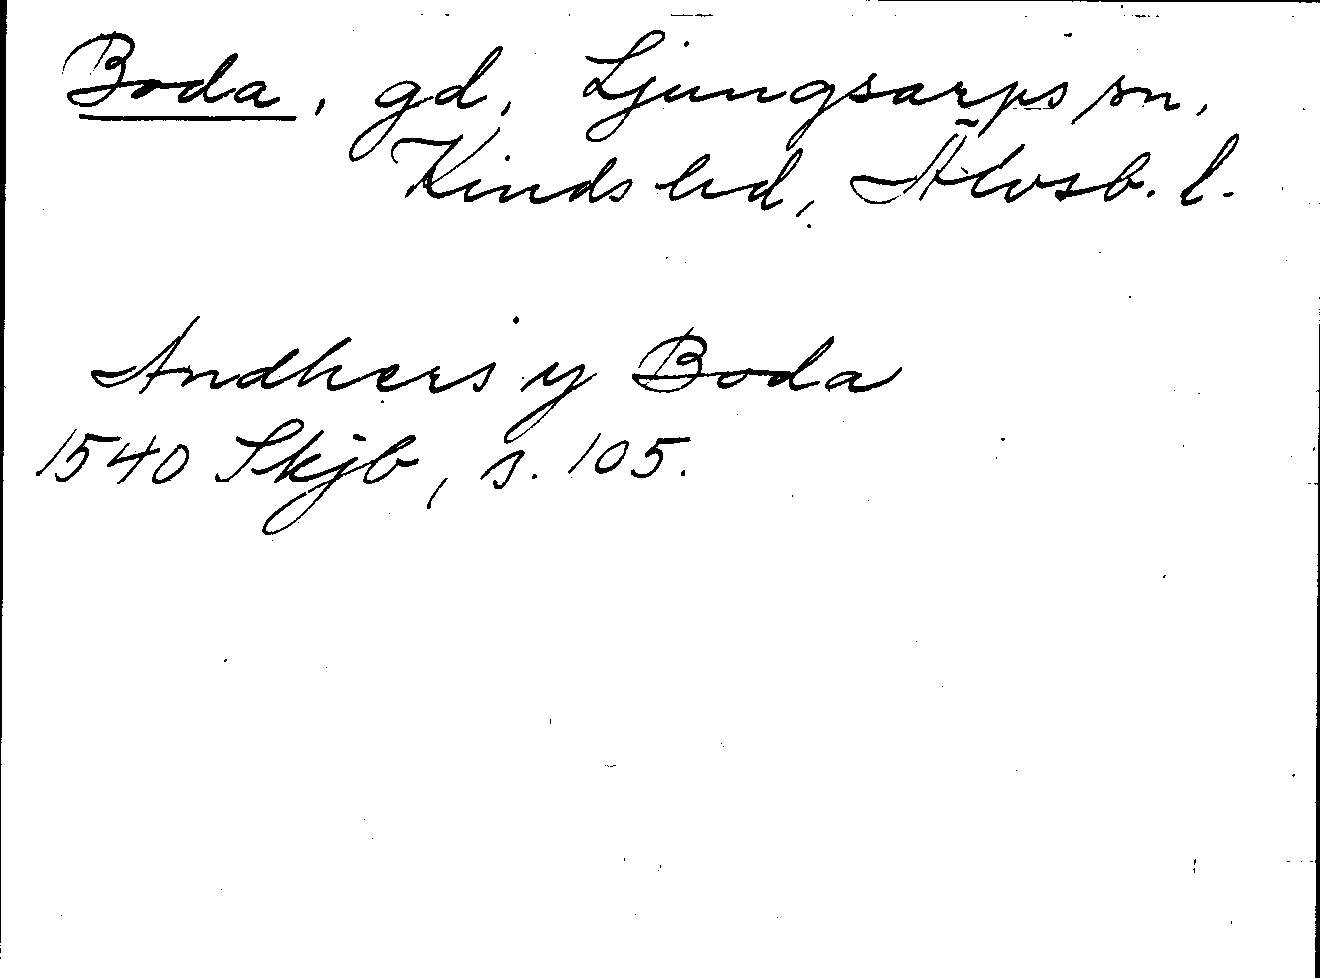 Boda, gd, Ljungsarps sn,
Kinds hd, Älvsb. l.
Andhers y Boda
1540 Skjb, s. 105.